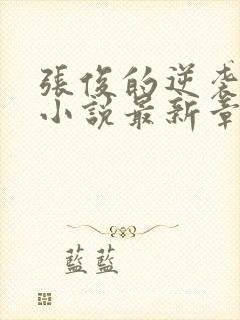 張俊的逆袭
小說最新章
藍藍